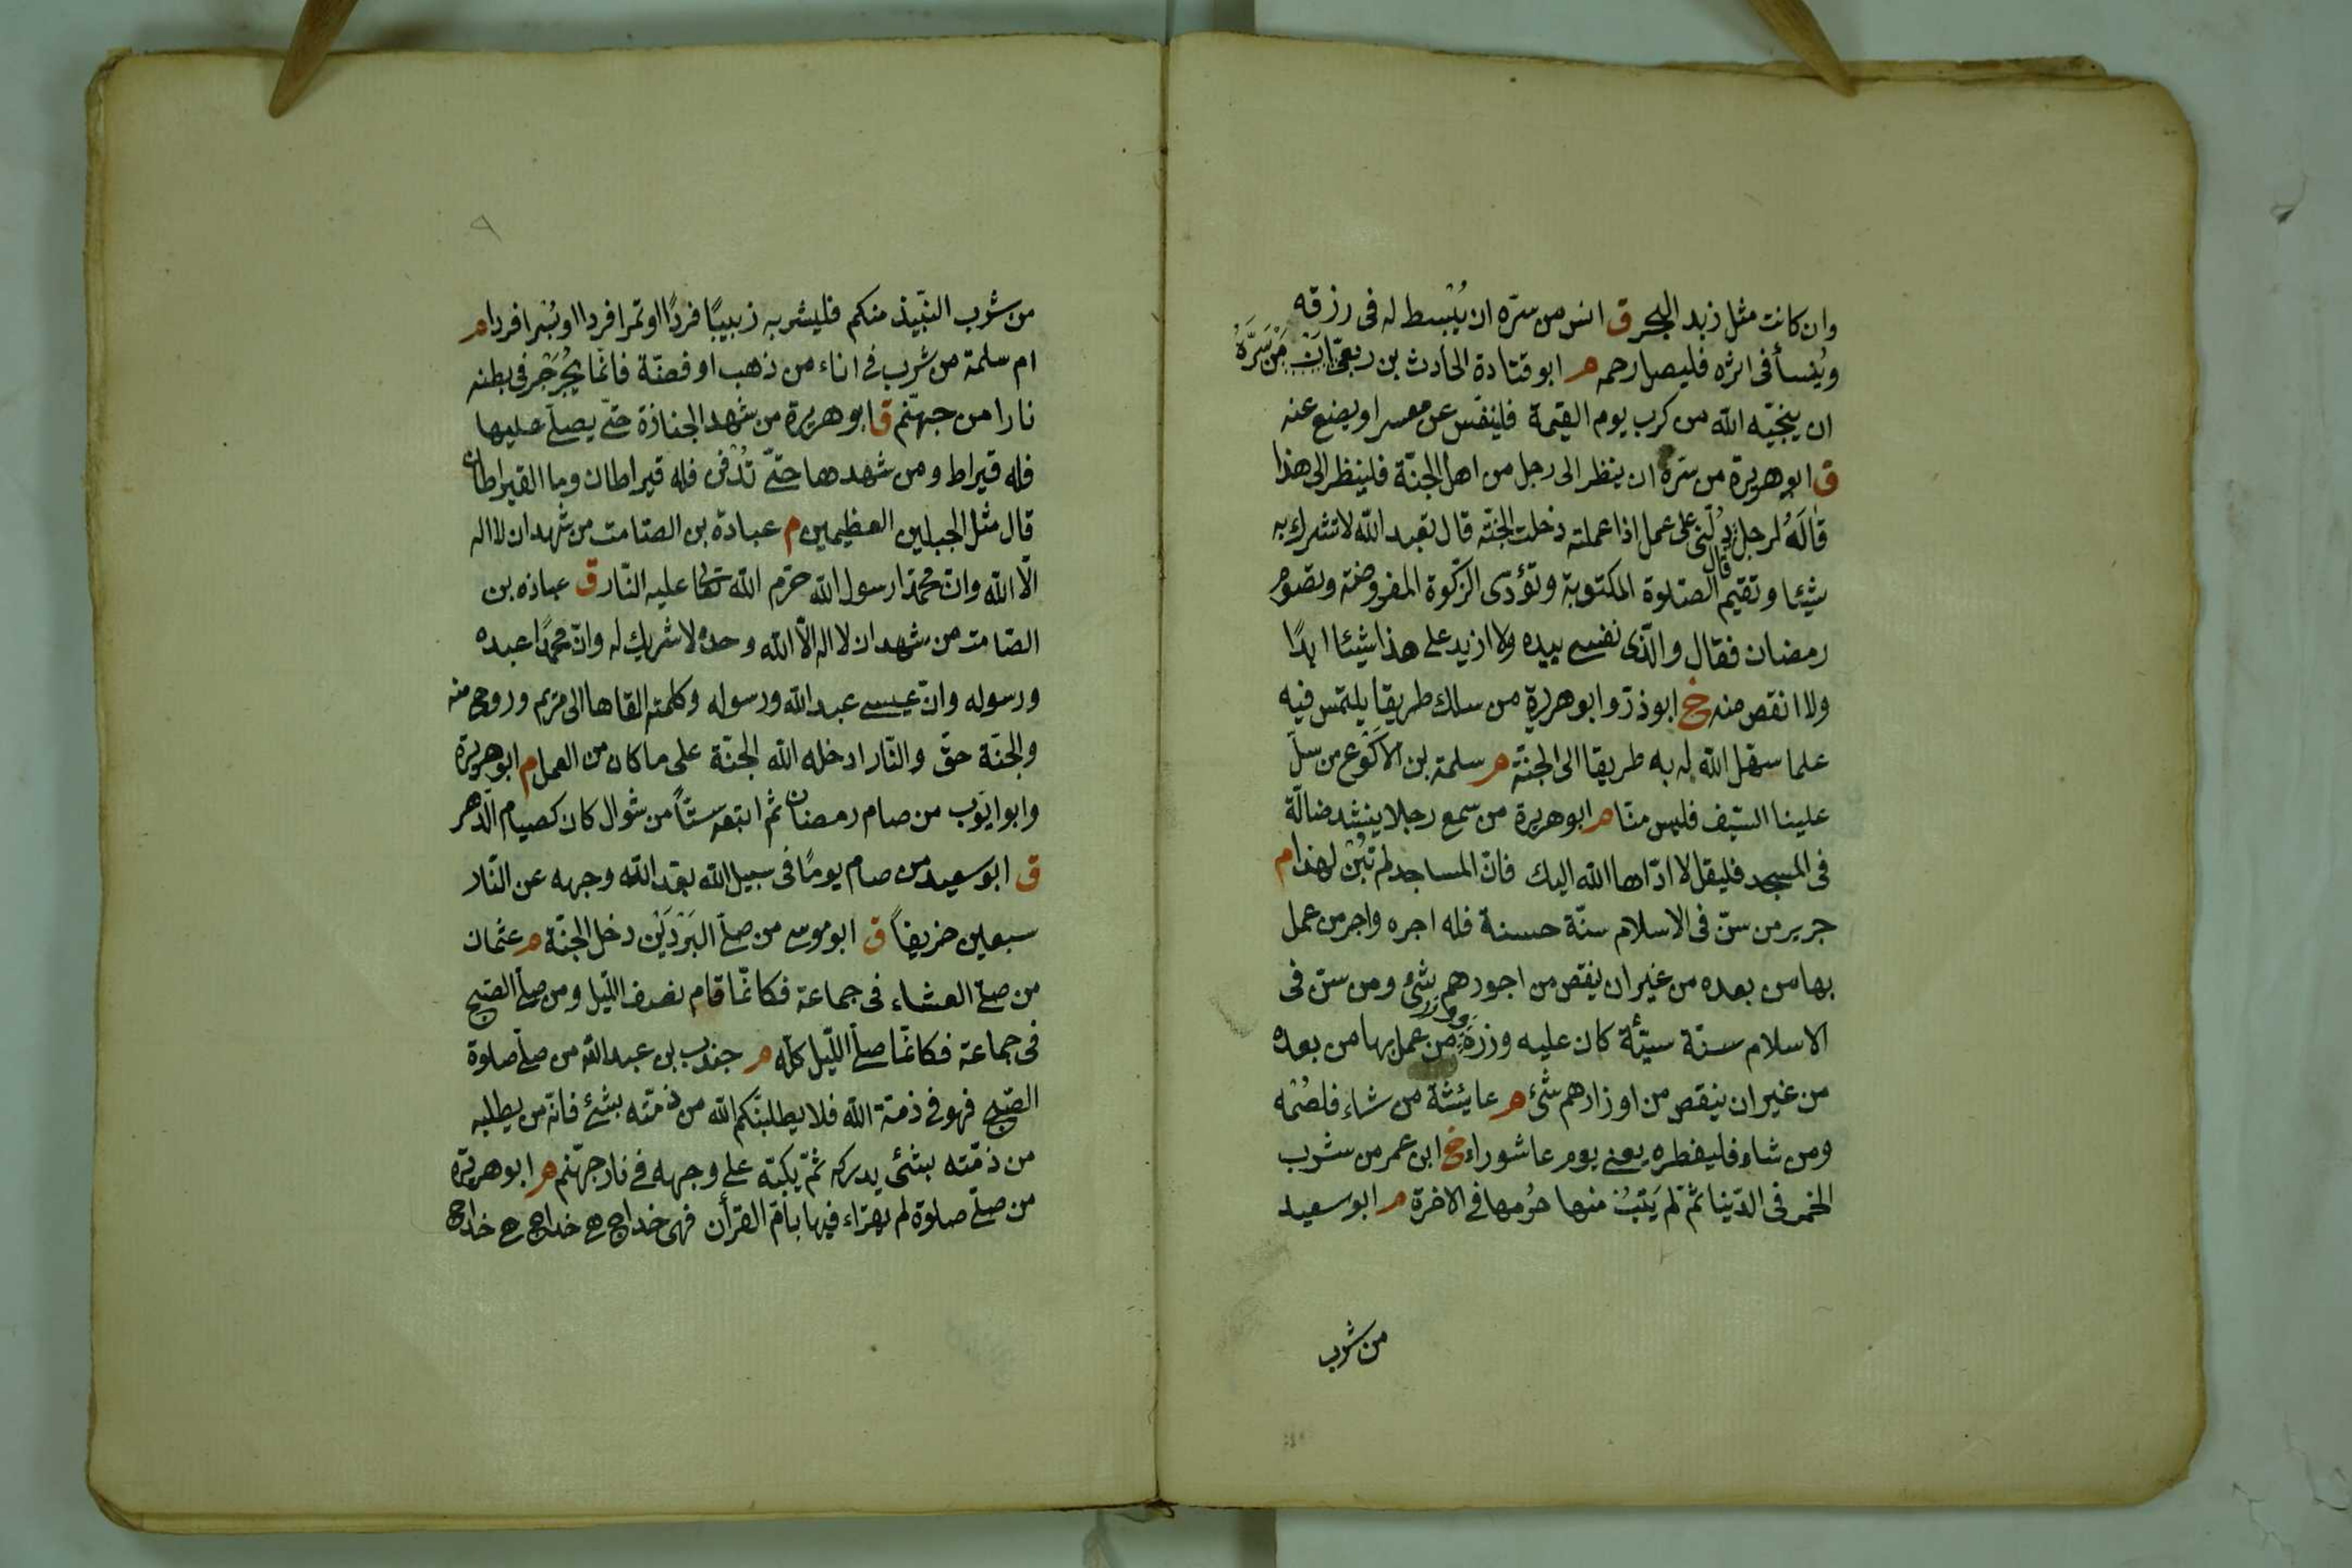 وان كانت مثل زبد البحر ق انس من سرّه ان يُبْسط له فى رزقه
ويُنسأ فى اثره فليصل رحمه م ابو قتادة الحارث بن ربعىّ مَنْ سَرَّهُ
ان ينجّيه الله من كرب يوم القيمة فلينفّس عن معسر او يضع عنه
ق ابو هريرة من سرّه ان ينظر الى رجل من اهل الجنّة فلينظر الى هذا
قَالَهُ لرجل قال دُلّنى على عمل اذا عملته دخلت الجنّة قال تعبد الله لا تشرك به
شيئا وتقيم الصّلوة المكتوبة وتؤدّى الزّكوة المفروضة وتصوم
رمضان فقال والّذى نفسى بيده ولا ازيد على هذا شيئا ابدًا
ولا انقص منه خ ابو ذرّ وابو هريرة من سلك طريقا يلتمس فيه
علما سهّل الله له به طريقا الى الجنّة م سلمة بن الاَكْوَع من سلّ
علينا السّيف فليس منّا م ابو هريرة من سمع رجلا ينشد ضالّة
فى المسجد فليقل لا ادّاها الله اليك فانّ المساجد لم تُبْنَ لهذا م
جرير من سنّ فى الاسلام سنّة حسنة فله اجره واجر من عمل
بها من بعده من غير ان ينقص من اجورهم شئ ومن سنّ فى
الاسلام سنّة سيّئة كان عليه وزره ووزر من عمل بها من بعده
من غير ان ينقص من اوزارهم شئ م عايشة من شاء فلصُمْه
ومن شاء فليفطره يعنى يوم عاشوراء خ ابن عمر من شرب
الخمر فى الدّينا ثمّ لم يَتُبْ منها حُرمها فى الاخرة م ابو سعيد
من شرب
من شرب النّبيذ منكم فليشربه زبيبًا فردًا او تمرا فردا او بُسْرا فردا م
ام سلمة من شرب فى اناء من ذهب او فضّة فانّما يُجَرْجِر فى بطنه
نارا من جهنّم ق ابو هريرة من شهد الجنازة حتّى يصلّى عليها
فله قيراط ومن شهدها حتّى تُدْفن فله قيراطان وما القيراطان
قال مثل الجبلين العظيمين م عبادة بن الصّامت من شهد ان لا اله
الّا الله وانّ محمّدا رسول الله حرّم الله تعالى عليه النّار ق عباده بن
الصّامت من شهد ان لا اله الّا الله وحده لا شريك له وانّ محمّدًا عبده
ورسوله وانّ عيسى عبد الله ورسوله وكلمته القاها الى مريم وروح منه
والجنّة حقّ والنّار ادخله الله الجنّة على ما كان من العمل م ابو هريرة
وابو ايّوب من صام رمضان ثم اتبعه ستّاً من شوال كان كصيام الدّهر
ق ابو سعيد من صام يومًا فى سبيل الله بعّد الله وجهه عن النّار
سبعين خريفاً ق ابو موسى من صلّى البَرْدَيْن دخل الجنّة م عثمان
من صلّى العشاء فى جماعة فكانّما قام نصف اللّيل ومن صلّى الصّبح
فى جماعة فكانّما صلّى اللّيل كلّه م جندب بن عبد الله من صلّى صلوة
الصّبح فهو فى ذمّة الله فلا يطلبنّكم الله من ذمّته بشئ فانّه من يطلبه
من ذمّته بشئ يدركه ثمّ يكبّه على وجهه فى نار جهنّم م ابو هريرة
من صلّى صلوة لم يقراء فيها بامّ القرأن فهى خداج هى خداج هى خداج